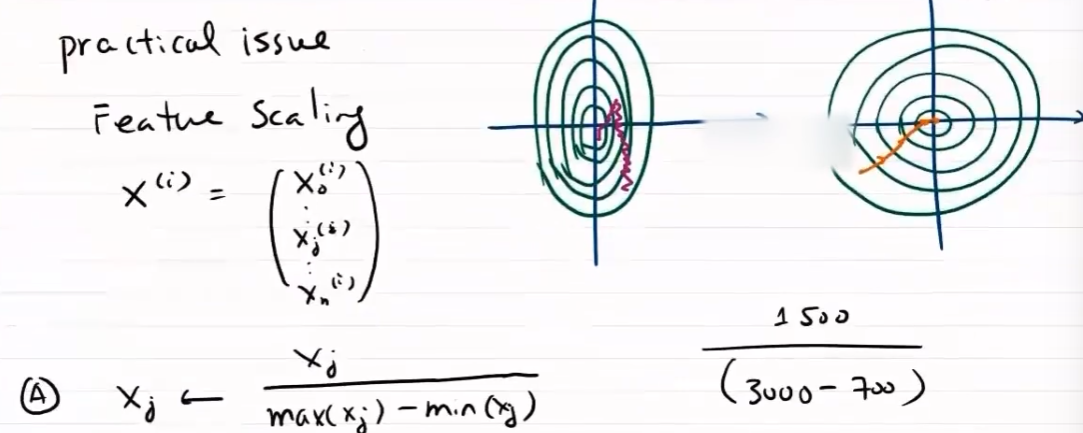 practical issue
Featue Scaling
X^(i) = ( x_0^(i) ⋮ x_j^(i) ⋮ x_n^(i) )
Ⓐ x_j ← x_j / (max(x_j) - min(x_j))
1500 / (3000 - 700)